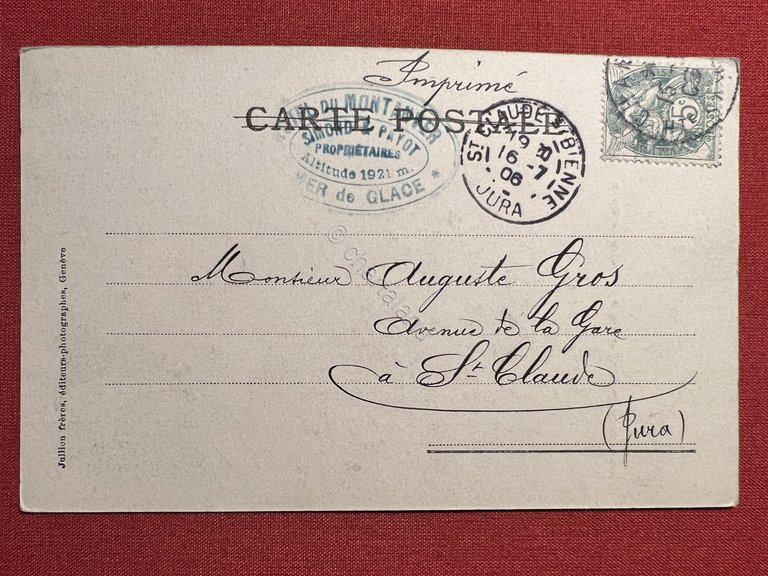 Imprimé
CARTE POSTALE
DU MONTANVER
SIMOND & PAYOT
PROPRIÉTAIRES
Altitude 1921 m.
MER de GLACE *
ST CLAUDE S BIENNE
16 -7
06
JURA
5
Monsieur Auguste Gros
Avenue de la Gare
à St Claude
(Jura)
Jullien frères, éditeurs-photographes, Genève